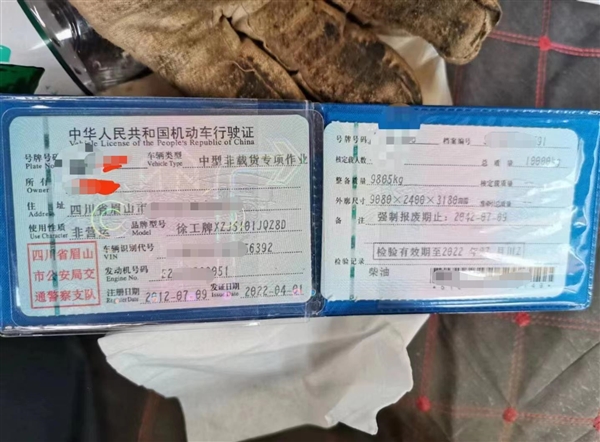 中华人民共和国机动车行驶证
Vehicle License of the People's Republic of China
号牌号码
Plate No.
车辆类型
Vehicle Type
中型非载货专项作业
所有
Owner
住 址
Address
四川省眉山市
使用性质
Use Character
非营运
品牌型号
Model
徐工牌XZJ5101JQZ8D
四川省眉山
市公安局交
通警察支队
车辆识别代号
VIN
6392
发动机号码
Engine No.
051
注册日期
Register Date
2012-07-09
发证日期
Issue Date
2022-04-01
号牌号码
档案编号
核定载人数
总质量
整备质量
9805kg
核定载质量
外廓尺寸
9080×2400×3180
备 注
强制报废期止:
检验有效期至2022
检验记录
柴油